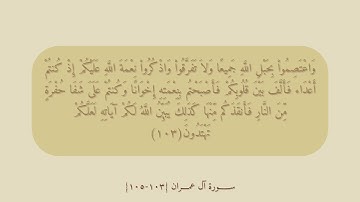 وَاعْتَصِمُواْ بِحَبْلِ اللّهِ جَمِيعًا وَلاَ تَفَرَّقُواْ وَاذْكُرُواْ نِعْمَةَ اللّهِ عَلَيْكُمْ إِذْ كُنتُمْ
أَعْدَاء فَأَلَّفَ بَيْنَ قُلُوبِكُمْ فَأَصْبَحْتُم بِنِعْمَتِهِ إِخْوَانًا وَكُنتُمْ عَلَىَ شَفَا حُفْرَةٍ
مِّنَ النَّارِ فَأَنقَذَكُم مِّنْهَا كَذَلِكَ يُبَيِّنُ اللّهُ لَكُمْ آيَاتِهِ لَعَلَّكُمْ
تَهْتَدُونَ(١٠٣)
سورة آل عمران |١٠٣-١٠٥|